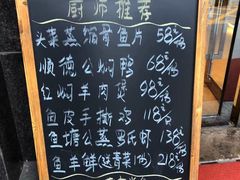 厨师推荐
头菜蒸鳊骨鱼片58元/份
顺德公焖鸭68元/份
红焖羊肉煲98元/份
白皮手撕鸡118元/份
鱼塘公蒸罗氏虾138元/份
鱼羊鲜(送青菜1份)218元/份